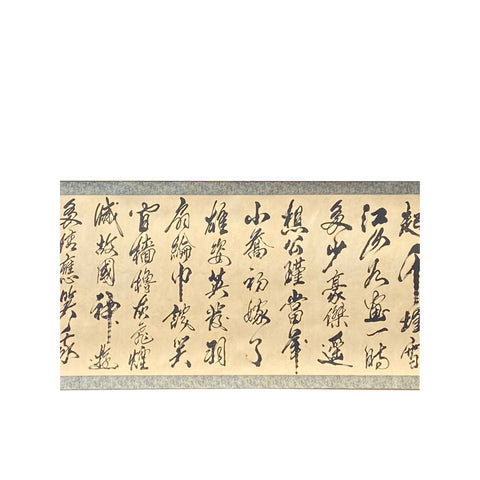 起千堆雪
江山如畫一時
多少豪傑遥
想公瑾當年
小喬初嫁了
雄姿英發羽
扇綸巾談笑
間檣櫓灰飛煙
滅故國神遊
多情應笑我